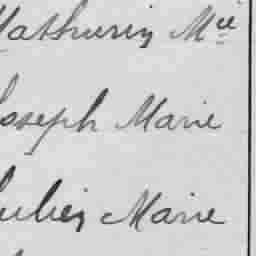 Mathurin Mie
Joseph Marie
Julien Marie